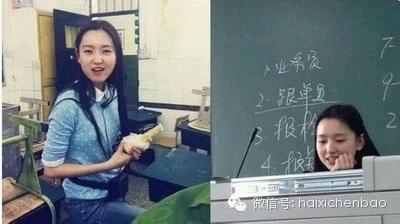 1.业务员
2.跟单员
3.报检
4.报
7
9
2
微信号: haixichenbao